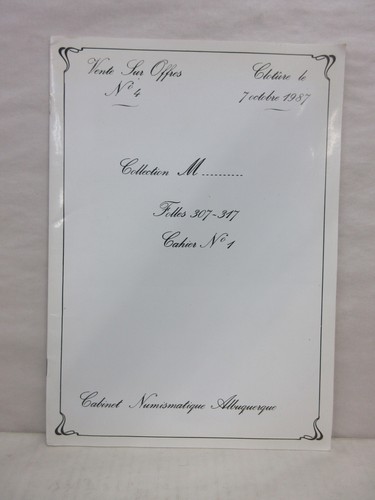 Vente Sur Offres
N° 4
Clôture le
7 octobre 1987
Collection M..........
Folles 307-317
Cahier N° 1
Cabinet Numismatique Albuquerque